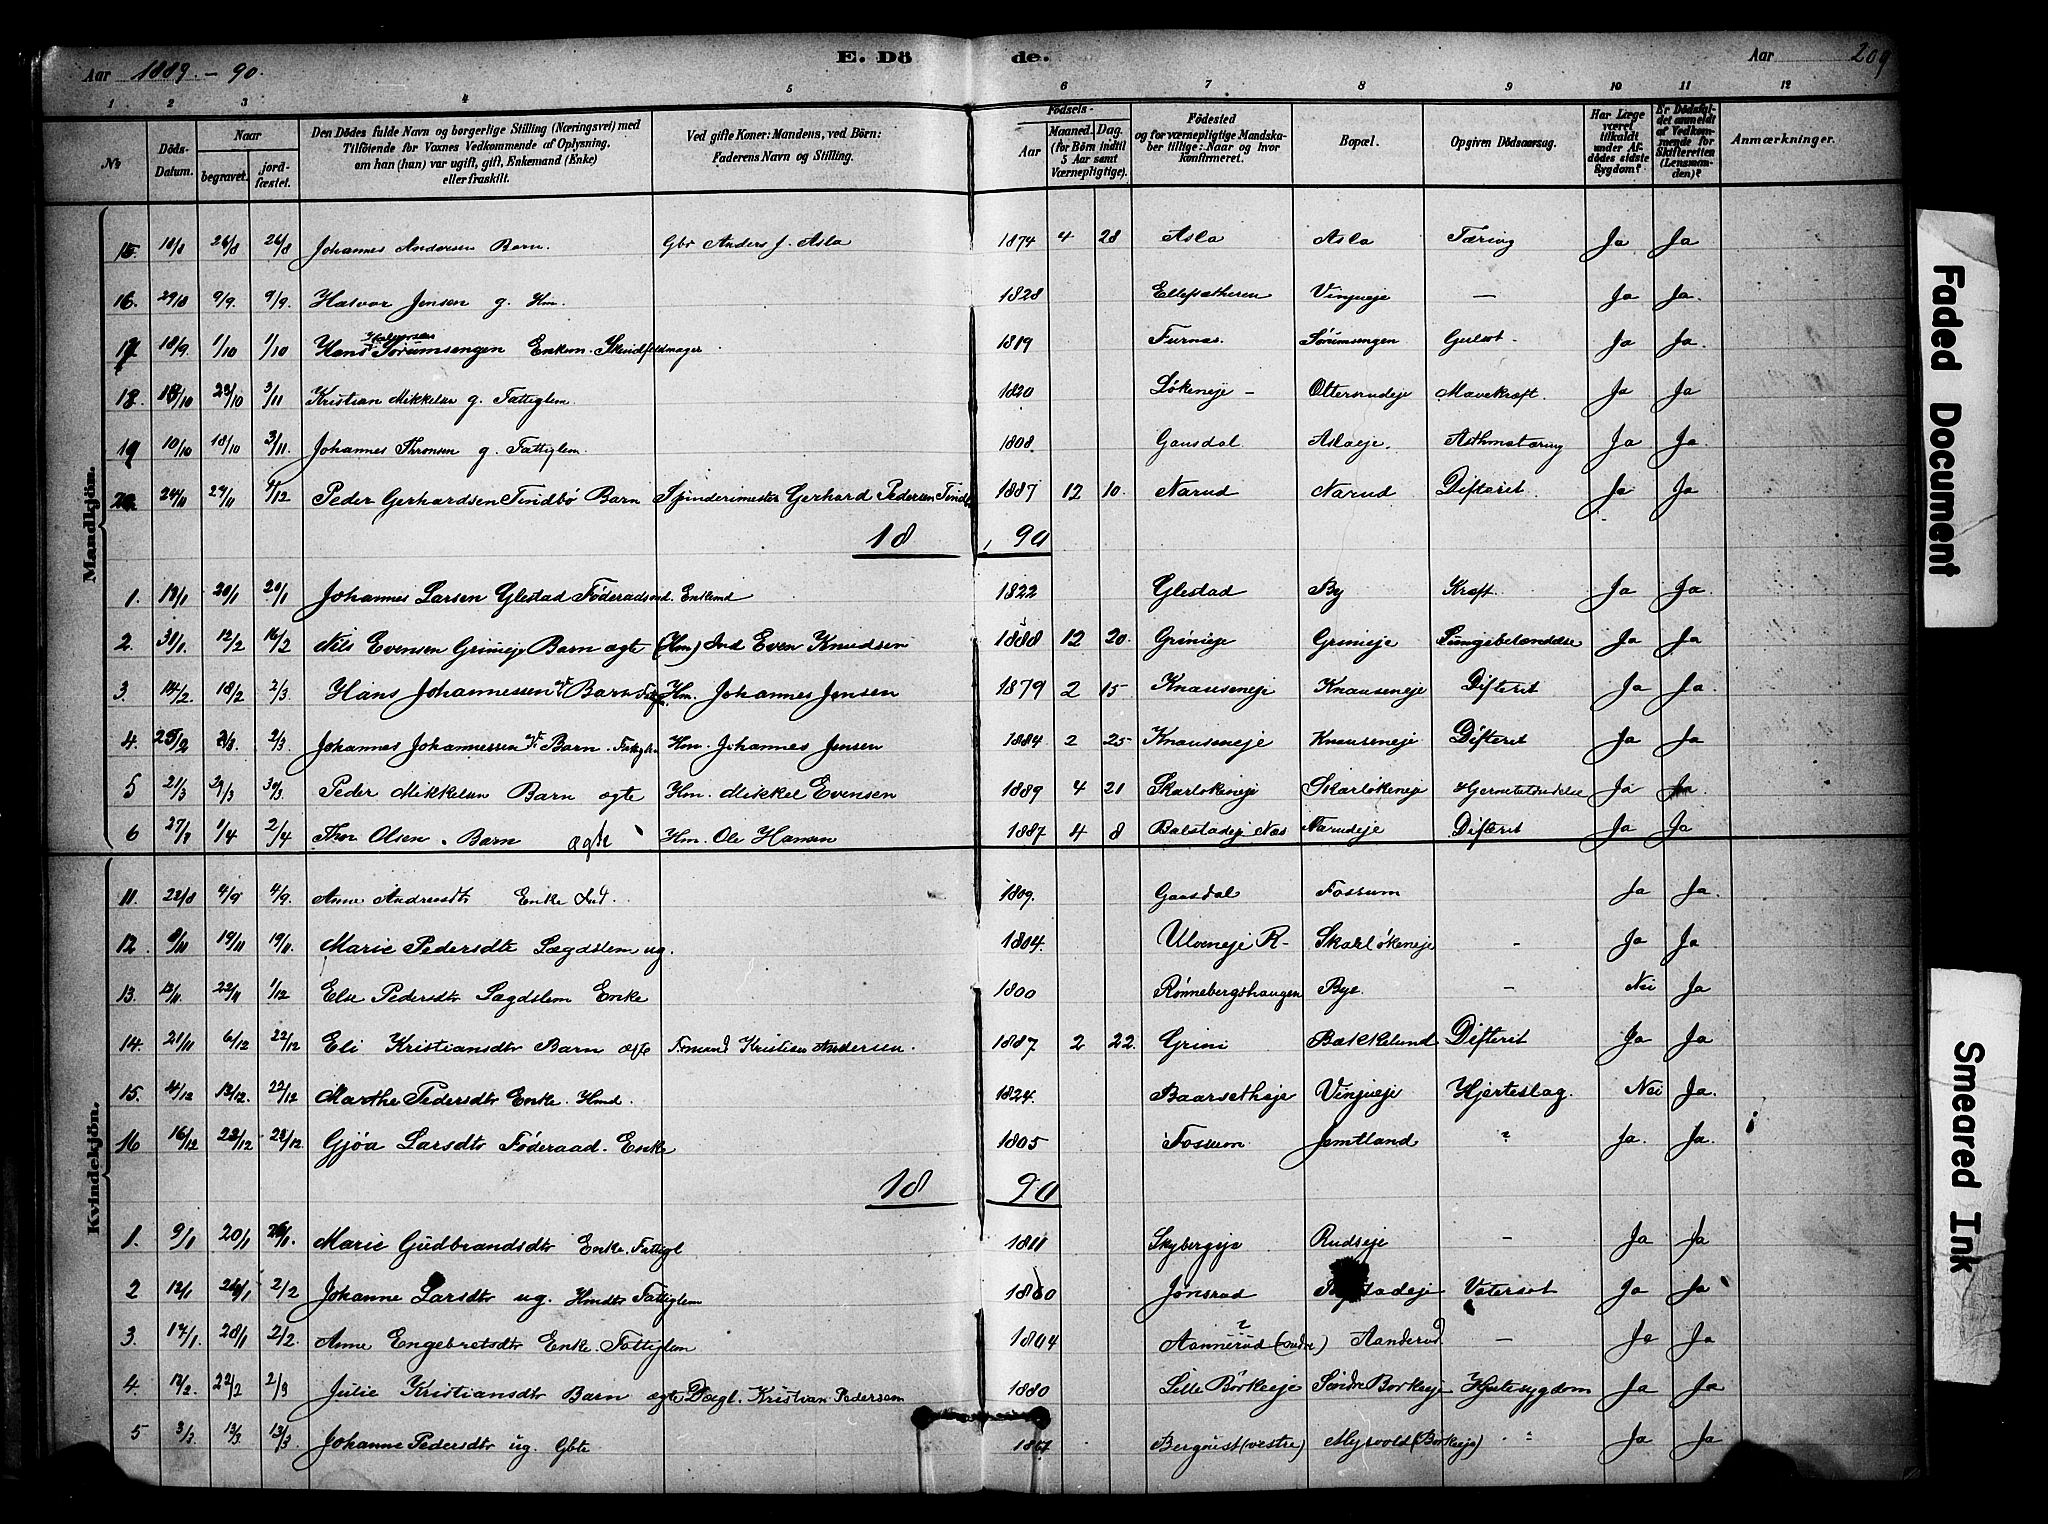 Aar 1889.-90. E. Dö de. Aar 209
1 2 3 4 5 6 7 8 9 10 11 12
No
Döds-Datum.
Naar
begravet.
jordfæstet.
Den Dödes fulde Navn og borgerlige Stilling (Næringsvei) med Tilföiende for Voxnes Vedkommende af Oplysning, om han (hun) var ugift, gift, Enkemand (Enke) eller fraskilt.
Ved gifte Koner: Mandens, ved Börn: Faderens Navn og Stilling.
Födsels-
Aar
Maaned. Dag.
(for Börn indtil 5 Aar samt Værnepligtige).
Födested og for værnepligtige Mandskaber tillige: Naar og hvor konfirmeret.
Bopæl.
Opgiven Dödsaarsag.
Har Læge været tilkaldt under Afdödes sidste Sygdom?
Er Dödsfaldet anmeldt af Vedkommende for Skifteretten (Lensmanden)?
Anmærkninger.
Mandkjön.
15 18/8 26/8 26/8 Johannes Andersen Barn. Gbr Anders J. Asla 1874 4 28 Asla Asla Tæring Ja Ja
16. 29/8 9/9. 9/9. Halvor Jensen g. Hm. 1828 Ellefsætheren Vinjueje — Ja Ja.
17 18/9 1/10 1/10 Hans Halvorsen Sørumsengen Enkm. Skindfeldmager 1819 Furnæs. Sørumsengen Gulsot. Ja Ja.
18. 18/10 23/10 3/11 Kristian Mikkelsen g. Fattiglem. 1820 Løkeneje - Ottersrudeje Mavekræft. Ja Ja.
19 10/10 18/10 3/11. Johannes Thronsen g. Fattiglem. 1808. Gausdal. Aslaeje. Asthmatæring Ja Ja.
20. 24/11 29/11 4/12 Peder Gerhardsen Tindbø Barn Spinderimester Gerhard Pedersen Tindbø 1887 12 10. Narud Narud Difterit. Ja Ja
18 90
1. 13/1 20/1 20/1 Johannes Larsen Glestad Føderaadsmd. Enkemd 1822 Glestad By Kræft. Ja Ja.
2. 31/1. 12/2 16/2 Nils Evensen Grinieje Barn ægte (Hm) Ind Even Knudsen 1888 12 20. Grinieje Grinieje Lungebetændelse Ja Ja.
3. 14/2. 18/2 2/3. Hans Johannessen Barn Hm. Johannes Jensen 1879 2 15 Knauseneje Knauseneje Difterit Ja Ja.
4. 25/2 2/3. 2/3 Johannes Johannessen Barn. Hm. Johannes Jensen 1884 2 25 Knauseneje Knauseneje Difterit Ja Ja
5 21/3 29/3 30/3. Peder Mikkelsen Barn ægte Hm. Mikkel Evensen 1889 4 21 Skarløkeneje Skarløkeneje Hjernebetændelse Ja Ja
6 27/3 1/4 2/4 Thor Olsen. Barn ægte Hm. Ole Hansen 1887 4 8 Balstadeje Næs Narudeje Difterit Ja Ja
Kvindekjön.
11. 22/8 4/9 4/9. Anne Andreasdtr Enke Ind. 1809. Gausdal Fossum Ja Ja.
12. 8/11 19/11 19/11. Marie Pedersdtr Lægdslem ug. 1804. Ulveneje R- Skarløkeneje - Ja Ja.
13. 13/11. 22/11 1/12 Else Pedersdtr Lægdslem Enke 1800 Rønnebergshaugen Bye. - Nei Ja
14. 21/11 6/12 22/12 Eli Kristiansdtr Barn ægte Kristian Andersen. 1887 2 22. Grini Bakkelund Difterit Ja Ja
15. 4/12 13/12. 22/12 Marthe Pedersdtr Enke. Hmd. 1824. Baarsetheje Vinjueje Hjerteslag. Nei Ja.
16 16/12 23/12 23/12. Gjøa Larsdtr Føderaad. Enke 1805 Fossum. Jemtland " Ja. Ja.
18 90
1. 9/1 20/1 26/1. Marie Gudbrandsdtr Enke. Fattigl 1811 Skybergeje Rudseje - Ja Ja
2 12/1 26/1 2/2 Johanne Larsdtr ug. Hmdtr Fattiglem 1860 Jønsrud Vatersot Ja Ja
3. 17/1. 28/1 2/2. Anne Engebretsdtr Enke. Fattiglem 1804 Aannerud (øvdre) Aanderud. — Ja Ja
4. 13/2. 22/2 2/3 Julie Kristiansdtr Barn ægte Dagl. Kristian Pedersen 1880 Lille Børkeeje Søndre Børkeeje Hjertesygdom Ja Ja
5 3/3. 13/3 13/3. Johanne Pedersdtr ug. Gbte 1867 Bergquist (vestre) Myrvold (Børkeeje) " Ja Ja
Faded Document
Smeared Ink